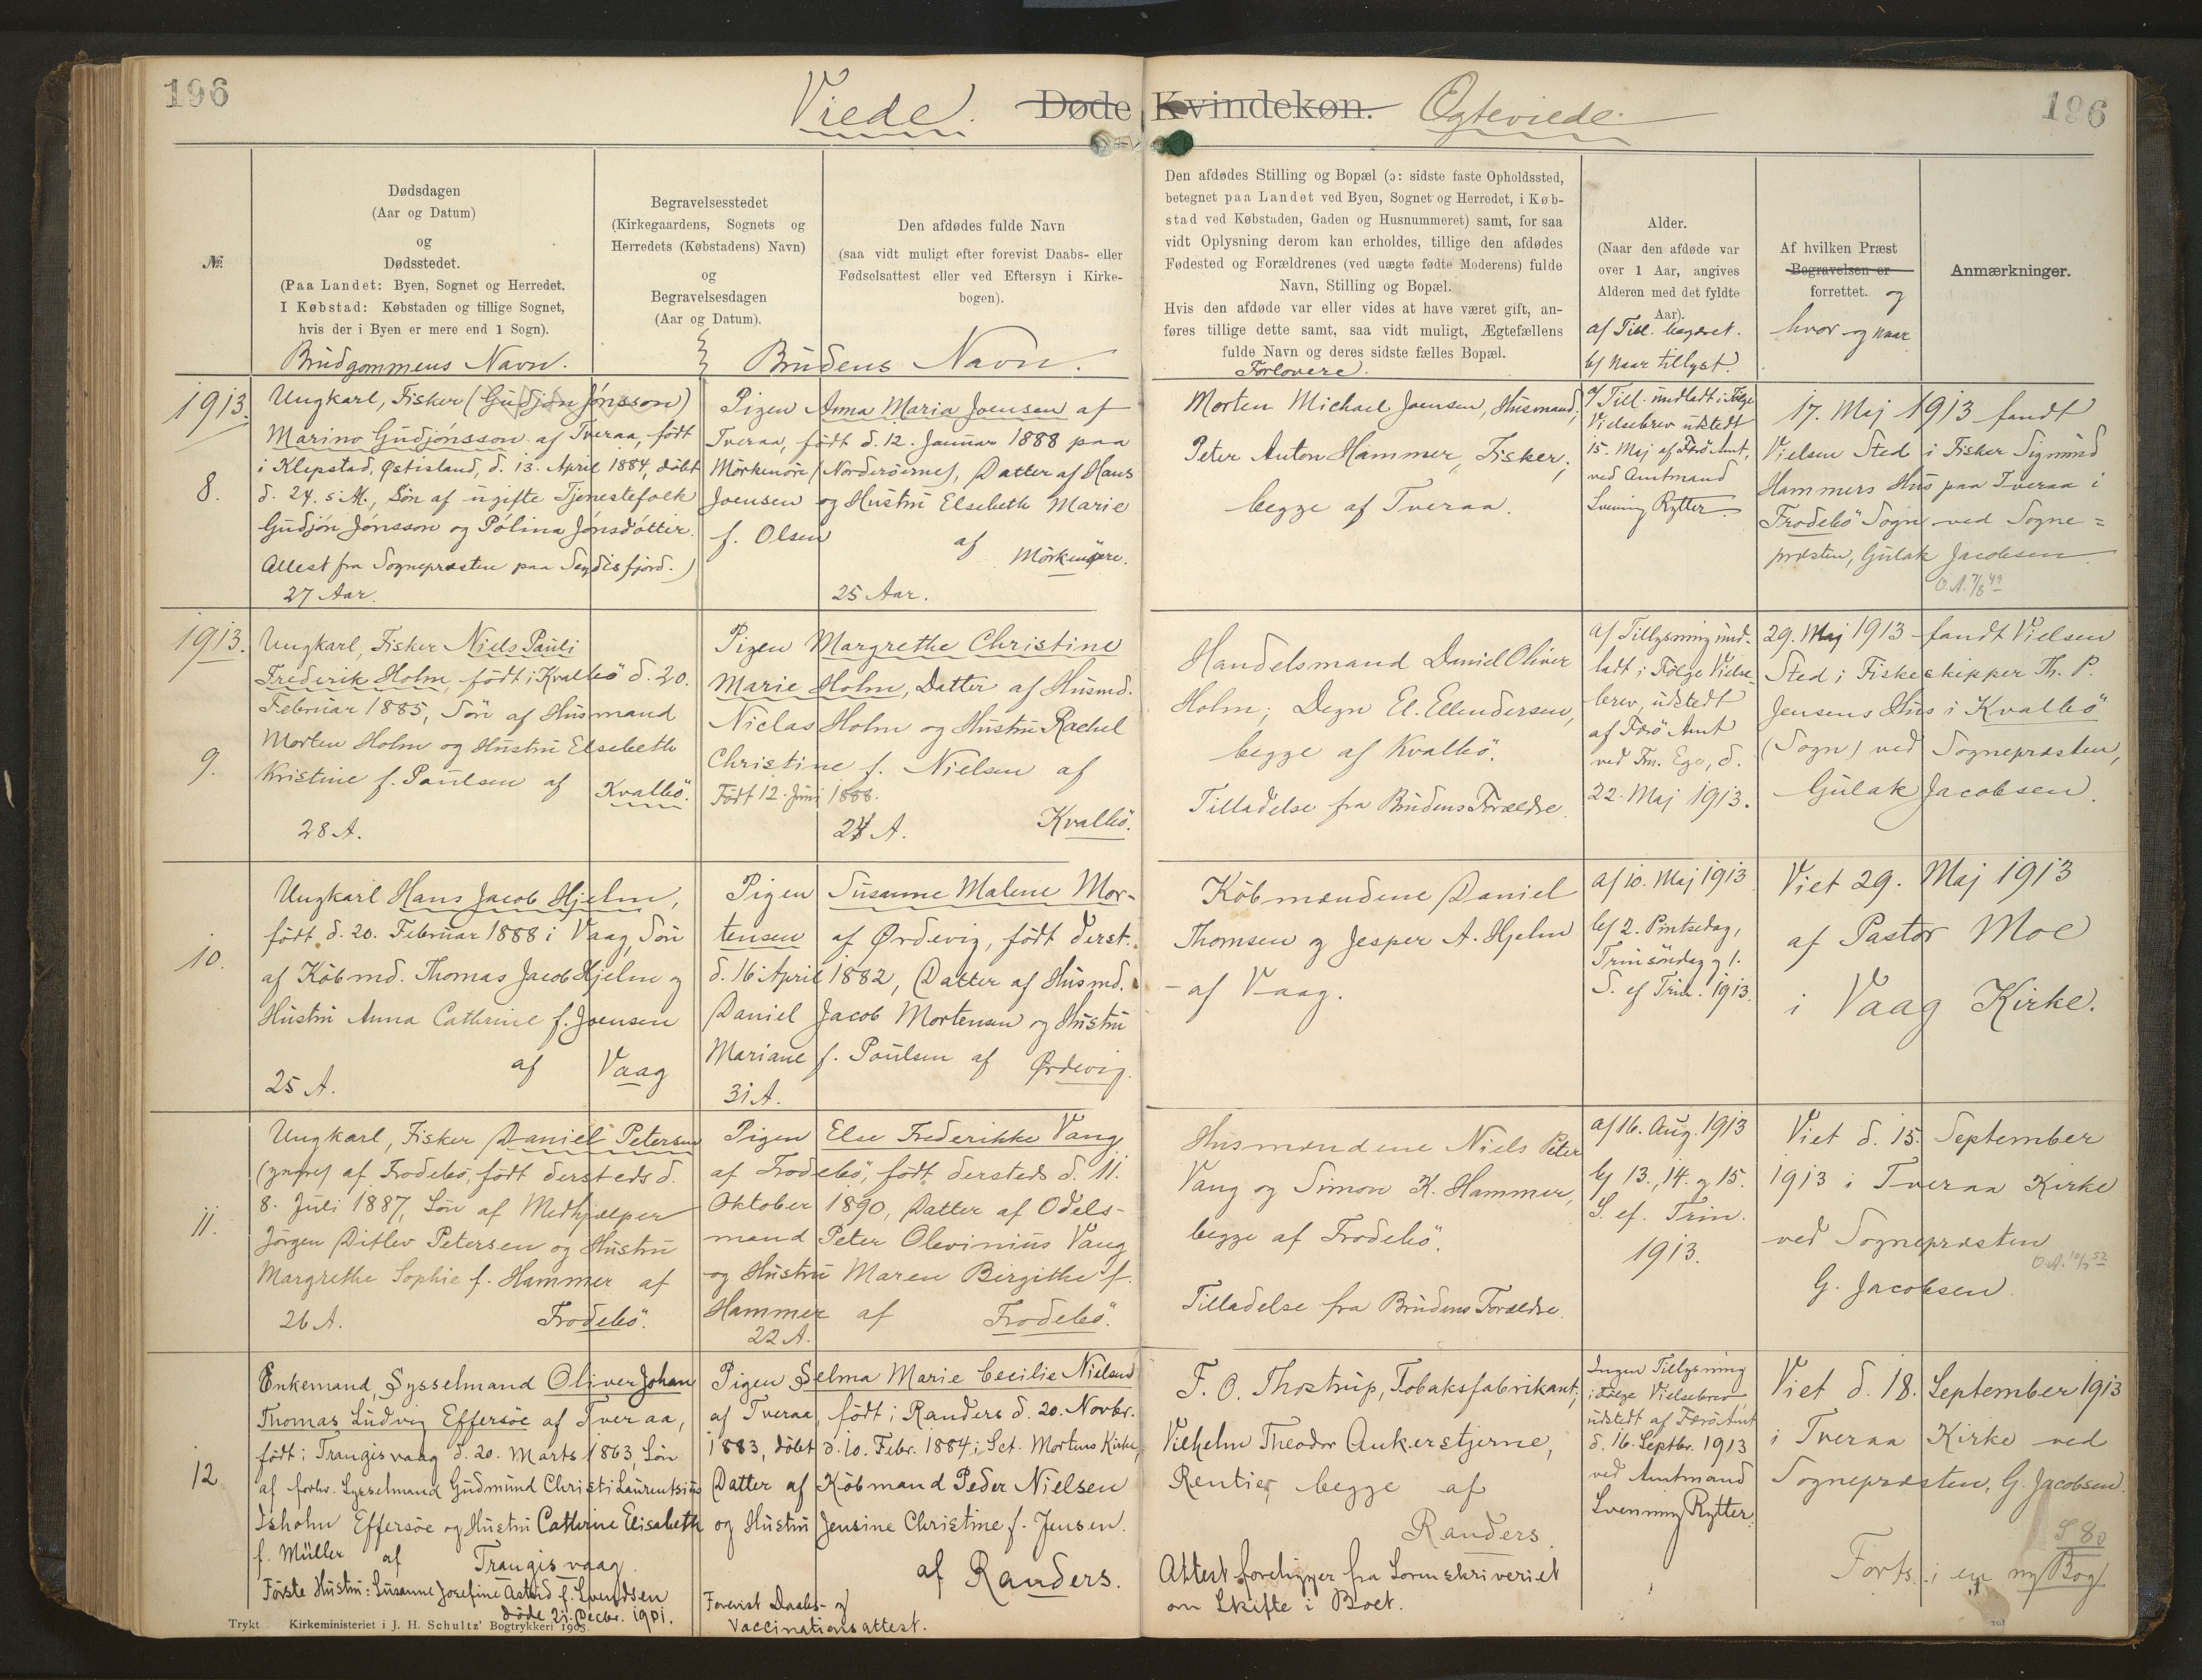 196
Viede.
Døde Kvindekøn.
Egteviede.
196
№
Dødsdagen
(Aar og Datum)
og
Dødsstedet.
(Paa Landet: Byen, Sognet og Herredet.
I Købstad: Købstaden og tillige Sognet,
hvis der i Byen er mere end 1 Sogn).
Brudgommens Navn.
Begravelsesstedet
(Kirkegaardens, Sognets og
Herredets (Købstadens) Navn)
og
Begravelsesdagen
(Aar og Datum).
Den afdødes fulde Navn
(saa vidt muligt efter forevist Daabs- eller
Fødselsattest eller ved Eftersyn i Kirke-
bogen).
Brudens Navn.
Den afdødes Stilling og Bopæl (ɔ: sidste faste Opholdssted,
betegnet paa Landet ved Byen, Sognet og Herredet, i Køb-
stad ved Købstaden, Gaden og Husnummeret) samt, for saa
vidt Oplysning derom kan erholdes, tillige den afdødes
Fødested og Forældrenes (ved uægte fødte Moderens) fulde
Navn, Stilling og Bopæl.
Hvis den afdøde var eller vides at have været gift, an-
føres tillige dette samt, saa vidt muligt, Ægtefællens
fulde Navn og deres sidste fælles Bopæl.
Forlovere.
Alder.
(Naar den afdøde var
over 1 Aar, angives
Alderen med det fyldte
Aar).
a/ Till. begæret.
b/ Naar tillyst.
Af hvilken Præst
Begravelsen er
forrettet. og
hvor og naar
Anmærkninger.
1913.
8.
Ungkarl, Fisker (Gudjón Jónsson)
Marino Gudjónsson af Tveraa, født
i Klepstad, Østisland, d. 13. April 1884, døbt
d. 24. s. M., Søn af ugifte Tjenestefolk
Gudjón Jónsson og Pólina Jónsdóttir.
Attest fra Sognepræsten paa Seydisfjord.)
27 Aar.
Pigen Anna Maria Joensen af
Tveraa, født d. 12. Januar 1888 paa
Mörkenöre (Norderöerne), Datter af Hans
Joensen og Hustru Elsebeth Marie
f. Olsen af Mörkenöre.
25 Aar.
Morten Michael Joensen, Husmand;
Peter Anton Hammer, Fisker;
begge af Tveraa.
a/ Till. undladt i Følge
Vielsebrev udstedt
15. Maj af Færö Amt,
ved Amtmand
Svenning Rytter.
17. Maj 1913 fandt
Vielsen Sted i Fisker Sigmund
Hammers Hus paa Tveraa i
Frodebö Sogn ved Sogne=
præsten, Gulak Jacobsen.
O.A. 7/8 49
1913.
9.
Ungkarl, Fisker Niels Pauli
Frederik Holm, født i Kvalbö d. 20.
Februar 1885, Søn af Husmand
Morten Holm og Hustru Elsebeth
Kristine f. Poulsen af Kvalbö.
28 A.
Pigen Margrethe Christine
Marie Holm, Datter af Husmd.
Niclas Holm og Hustru Rachel
Christine f. Nielsen af
Født 12. Juni 1888.
24 A. Kvalbö.
Handelsmand Daniel Oliver
Holm; Degn El. Ellendersen,
begge af Kvalbö.
Tilladelse fra Brudens Forældre.
a/ Tillysning und-
ladt i Følge Vielse-
brev, udstedt
af Færö Amt
ved Fm. Ege, d.
22. Maj 1913.
29. Maj 1913 fandt Vielsen
Sted i Fiskeskipper Th. P.
Jensens Hus i Kvalbö
(Sogn) ved Sognepræsten,
Gulak Jacobsen.
10.
Ungkarl Hans Jacob Hjelm,
født d. 20. Februar 1888 i Vaag, Søn
af Købmd. Thomas Jacob Hjelm og
Hustru Anna Cathrine f. Joensen
af Vaag
25 A.
Pigen Susanne Malene Mor-
tensen af Ørdevig, født derst.
d. 16. April 1882, Datter af Husmd.
Daniel Jacob Mortensen og Hustru
Mariane f. Poulsen af Ørdevig.
31 A.
Købmændene Daniel
Thomsen og Jesper A. Hjelm
- af Vaag.
a/ 10. Maj 1913
b/ 2. Pintsedag,
Trinsöndag og 1.
S. ef Trin. 1913.
Viet 29. Maj 1913
af Pastor Moe
i Vaag Kirke.
11.
Ungkarl, Fisker Daniel Petersen
(yngre) af Frodebö, født dersteds d.
8. Juli 1887, Søn af Medhjælper
Jörgen Ditlev Petersen og Hustru
Margrethe Sophie f. Hammer af
26 A. Frodebö.
Pigen Else Frederikke Vang
af Frodebö, født dersteds d. 11.
Oktober 1890, Datter af Odels-
mand Peter Olevinius Vang
og Hustru Maren Birgithe f.
Hammer af Frodebö.
22 A.
Husmændene Niels Peter
Vang og Simon K. Hammer,
begge af Frodebö.
Tilladelse fra Brudens Forældre.
a/ 16. Aug. 1913
b/ 13., 14. og 15.
S. ef. Trin.
1913.
Viet d. 15. September
1913 i Tveraa Kirke
ved Sognepræsten
G. Jacobsen.
12
Enkemand, Sysselmand Oliver Johan
Thomas Ludvig Effersøe af Tveraa,
født i Trangisvaag d. 20. Marts 1863, Søn
af forhv. Sysselmand Gudmund Christi Laurentsius
Isholm Effersøe og Hustru Cathrine Elisabeth
f. Müller af Trangisvaag.
Første Hustru: Susanne Josefine Astrid f. Svendsen
døde 21. Decbr. 1901.
Pigen Selma Marie Cecilie Nielsen
af Tveraa, født i Randers d. 20. Novbr.
1883, døbt d. 10. Febr. 1884 i Sct. Mortens Kirke,
Datter af Købmand Peder Nielsen
og Hustru Jensine Christine f. Jensen.
af Randers.
Forevist Daabs- og
Vaccinationsattest.
F. O. Thostrup, Tobaksfabrikant;
Vilhelm Theodor Ankerstjerne,
Rentier, begge af
Randers.
Attest foreligger fra Sorenskriveriet
om Skifte i Boet.
Ingen Tillysning
i Følge Vielsebrev
udstedt af Færö Amt
d. 16. Septbr. 1913
ved Amtmand
Svenning Rytter.
Viet d. 18. September 1913
i Tveraa Kirke ved
Sognepræsten, G. Jacobsen.
S 80
Forts. i en ny Bog
Trykt Kirkeministeriet i J. H. Schultz' Bogtrykkeri 1903.